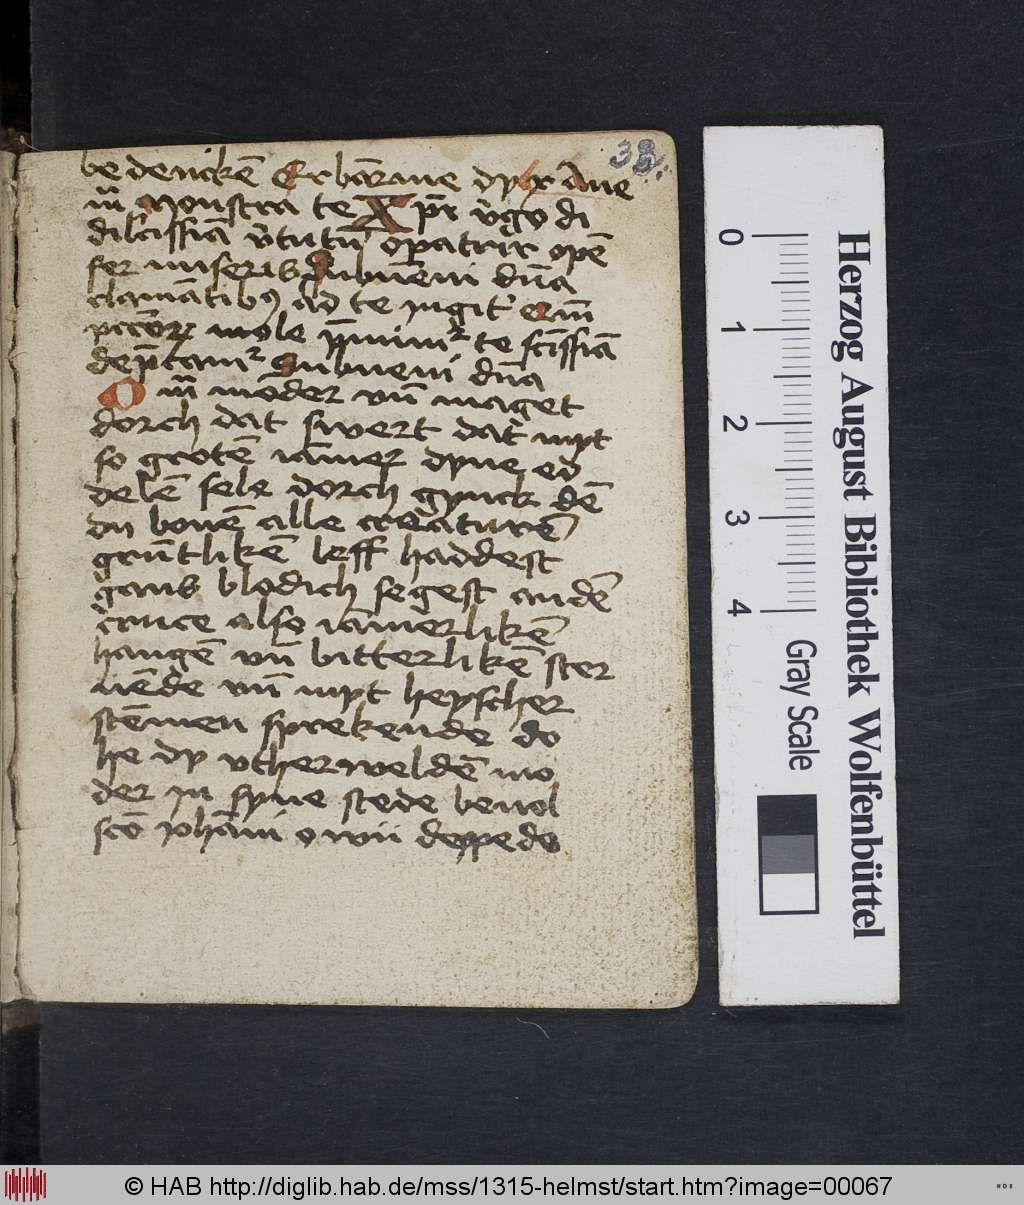 33.
be denckē Erbarme dy xr Aue
m̄ Monstra te X pr̄ v̄go di
dilcissīa v̄tutū o patrix opē
fer miseris Subueni dn̄a
clamātibꝰ ad te iugitʼ
mole p̄mimʳ te scīssīa
dep̄camʳ Subueni dn̄a
O m̄ mōder vn̄ maget
dorch dat swert dat myt
so grotē iāmer dyne ed
delē sele dorch gynck dē
du bouē alle creaturē
grūtlikē leff haddest
gans blodich segest an dē
cruce also iāmerlikē
hangē vn̄ bitterlikē ster
uēde vn̄ myt heyscher
stēmen sprekende do
he dy vtherweldē mo
der in syne stede beuol
scō iohāni o wu deppe de
0 1 2 3 4
Herzog August Bibliothek Wolfenbüttel
Gray Scale
© HAB http://diglib.hab.de/mss/1315-helmst/start.htm?image=00067